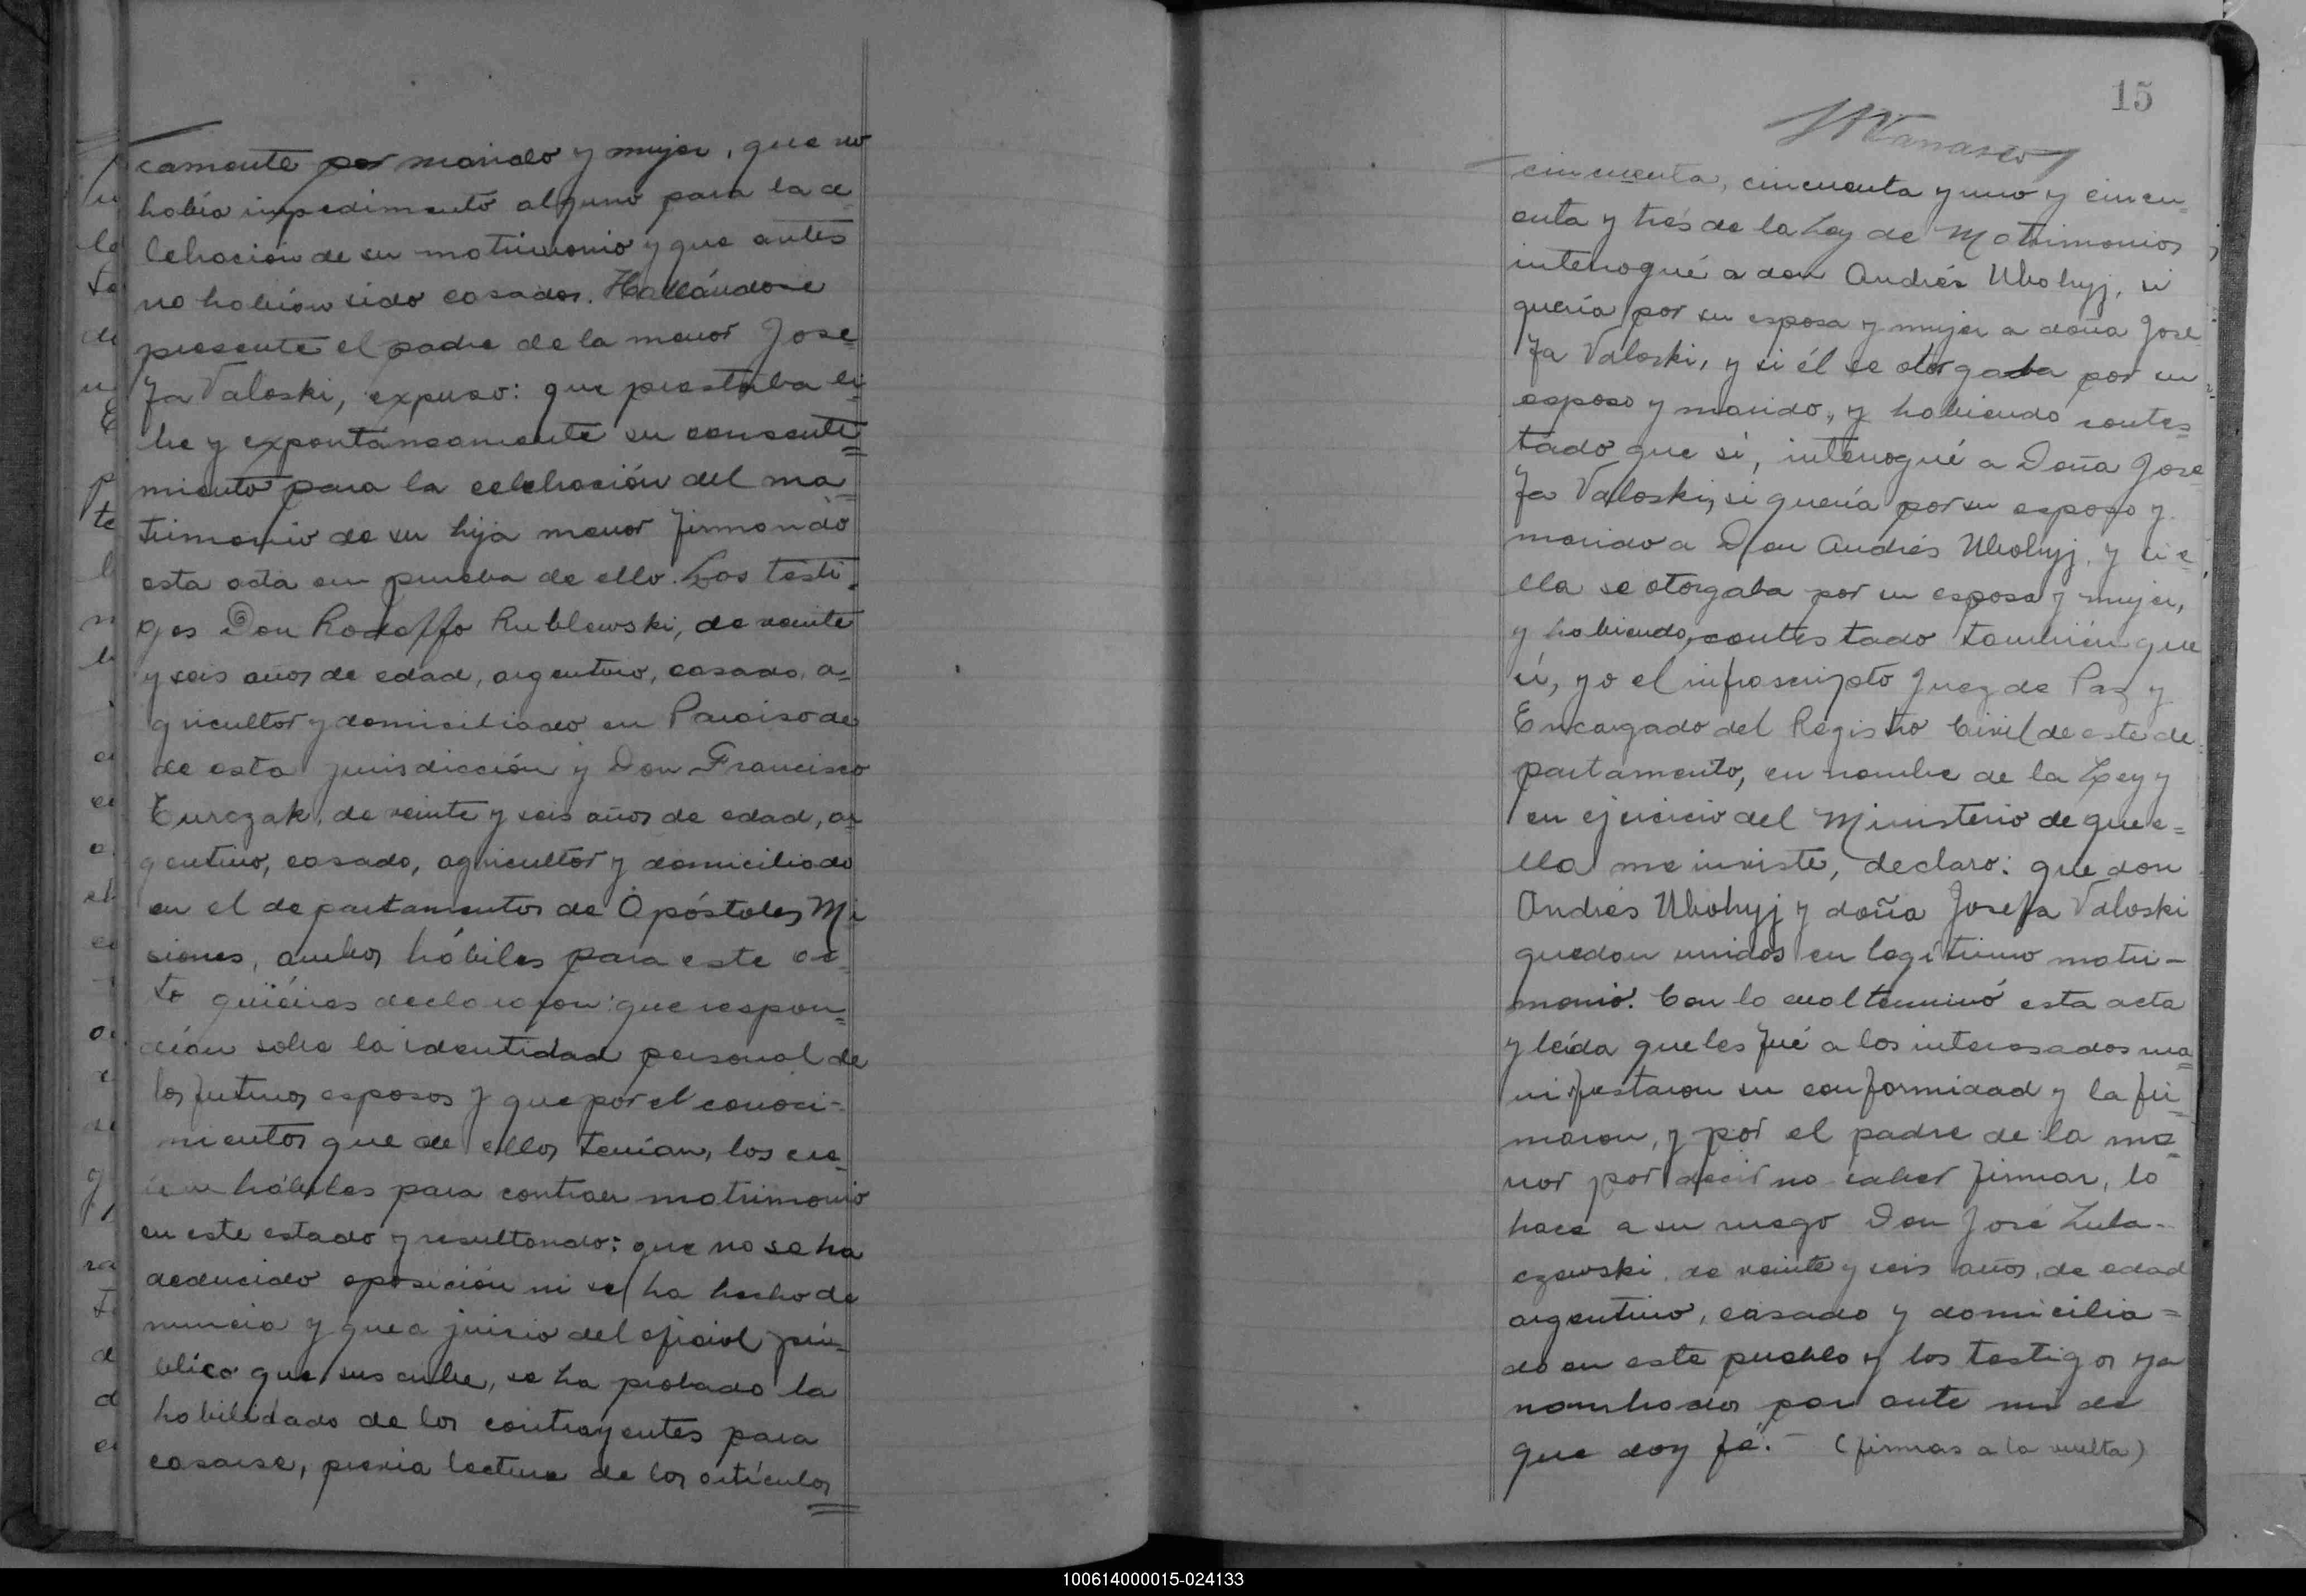 camente por marido y mujer, que no
había impedimento alguno para la ce
lebración de su matrimonio y que antes
no habían sido casados. Hallándose
presente el padre de la menor Jose=
fa Valoski, expuso: que prestaba li=
bre y expontáneamente su consenti=
miento para la celebración del ma=
trimonio de su hija menor firmando
esta acta en prueba de ello. Los testi=
gos Don Rodolfo Rublewski, de veinte
y seis años de edad, argentino, casado, a=
gricultor y domiciliado en Paraiso de
de esta jurisdicción y Don Francisco
Turczak, de veinte y seis años de edad, ar
gentino, casado, agricultor y domiciliado
en el departamentos de Apóstoles Mi
siones, ambos hábiles para este ac=
to quiénes declararon: que respon=
dían sobre la identidad personal de
los futuros esposos y que por el conoci=
mientos que de ellos tenían, los cre=
ían hábiles para contraer matrimonio
en este estado y resultando: que no se ha
deducido oposición ni se ha hecho de
nuncia y que a juicio del oficial pú=
blico que suscribe, se ha probado la
habilidado de los contrayentes para
casarse, previa lectura de los artículos
15
cincuenta, cincuenta y uno y cincu=
enta y trés de la Ley de Matrimonios
interrogué a don Andrés Ubohyj, si
quería por su esposa y mujer a doña Jose
fa Valoski, y si él se otorgaba por su
esposo y marido, y habiendo contes=
tado que sí, interrogué a Doña Jose
fa Valoski, si quería por su esposo y
marido a Don Andrés Ubohyj, y si e
lla se otorgaba por su esposa y mujer,
y habiendo contestado también que
sí, yo el infrascripto Juez de Paz y
Encargado del Registro Civil de este de=
partamento, en nombre de la Ley y
en ejercicio del Ministerio de que e=
lla me inviste, declaro: que don
Andrés Ubohyj y doña Josefa Valoski
quedan unidos en legítimo matri-
monio. Con lo cual terminó esta acta
y leída que les fué a los interesados ma
nifestaron su conformidad y la fir=
maron, y por el padre de la me=
nor por decir no saber firmar, lo
hace a su ruego Don José Lula-
czewski, de veinte y seis años, de edad
argentino, casado y domicilia=
do en este pueblo y los testigos ya
nombrados por ante mi de
que doy fé.- (firmas a la vuelta)
100614000015-024133